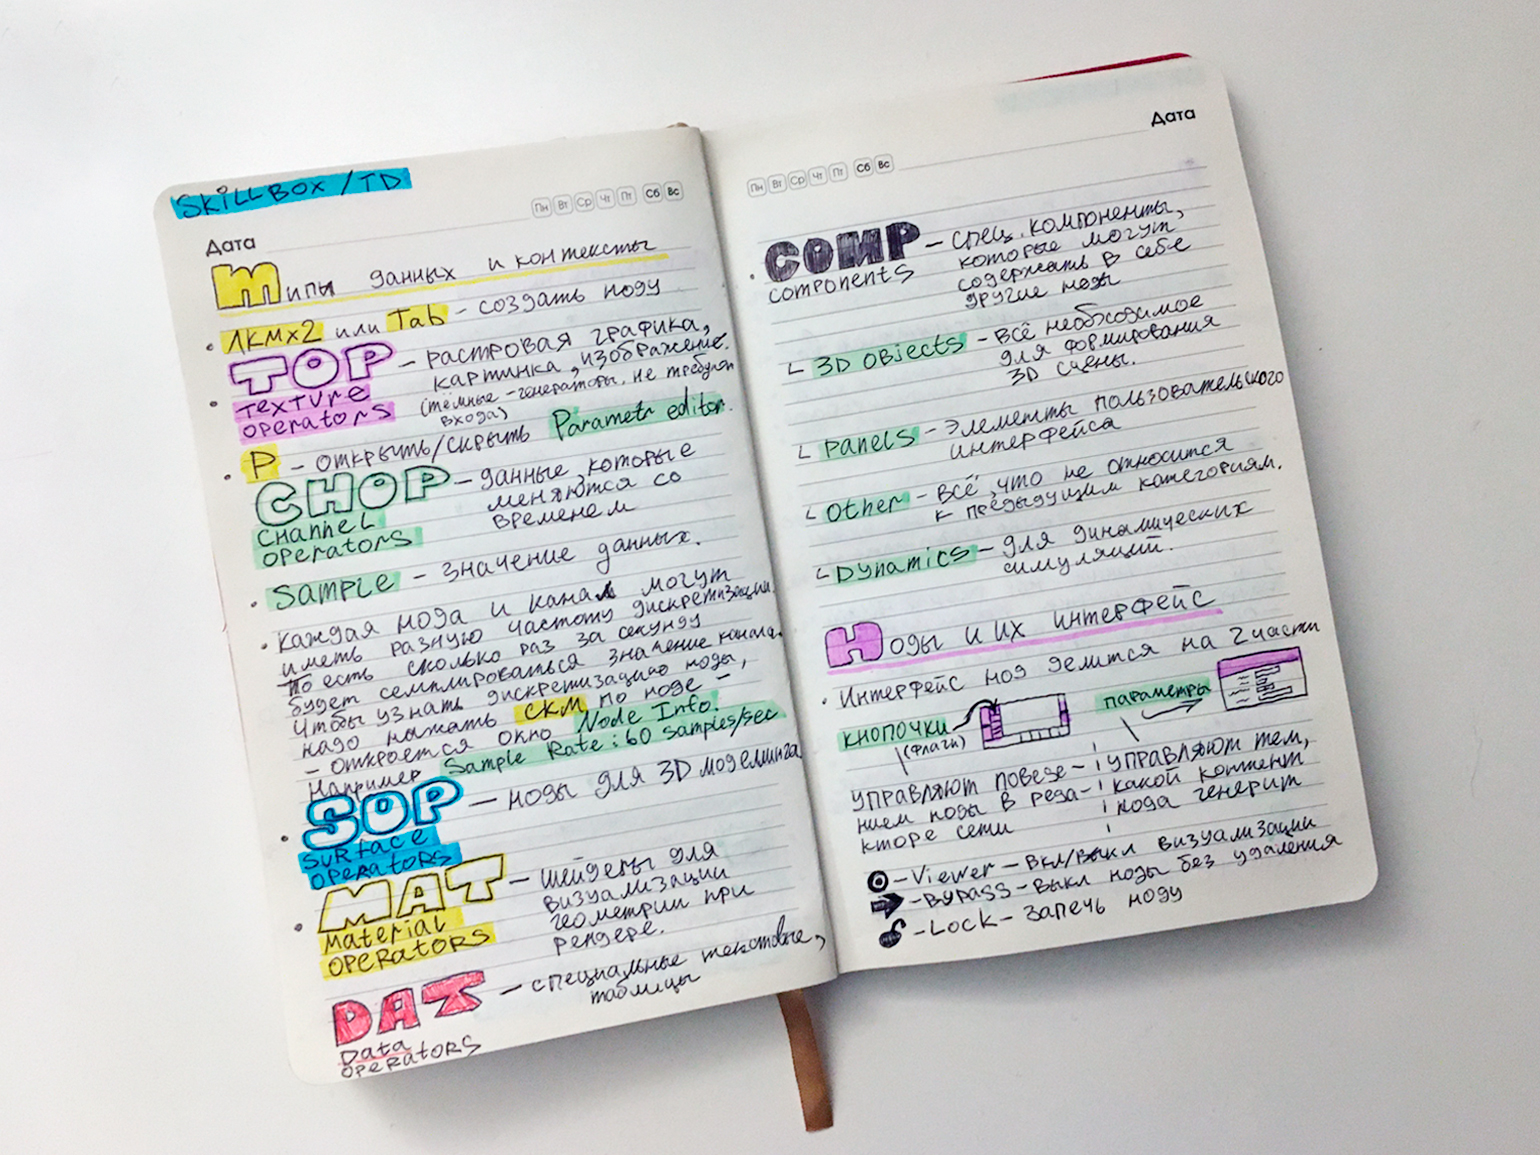 SKILLBOX / TD
Пн Вт Ср Чт Пт Сб Вс
Дата
Типы данных и контексты
ЛКМx2 или Tab - создать ноду
TOP - растровая графика,
Texture картинка, изображение.
operators (тёмные - генераторы. не требуют
входа)
P - открыть/скрыть Parametr editor.
CHOP - данные, которые
Channel меняются со
operators временем
Sample - значение данных.
каждая нода и канал могут
иметь разную частоту дискретизации.
То есть сколько раз за секунду
будет семплироваться значение канала.
Чтобы узнать дискретизацию ноды,
надо нажать СКМ по ноде -
- откроется окно Node Info.
Например Sample Rate: 60 samples/sec
SOP - ноды для 3D моделинга
Surface
operators
MAT - шейдеры для
Material визуализации
operators геометрии при
рендере.
DAT - специальные текстовые,
таблицы
Data
operators
Дата
Пн Вт Ср Чт Пт Сб Вс
COMP - спец. компоненты,
components которые могут
содержать в себе
другие ноды
3D objects - всё необходимое
для формирования
3D сцены.
Panels - Элементы пользовательского
интерфейса
Other - всё, что не относится
к предыдущим категориям.
Dynamics - для динамических
симуляций.
Ноды и их интерфейс
Интерфейс нод делится на 2 части
кнопочки параметры
(флаги)
управляют поведе- управляют тем,
нием ноды в реда- какой контент
кторе сети нода генерит
- Viewer - вкл/выкл визуализации
- Bypass - выкл ноды без удаления
- Lock - запечь ноду